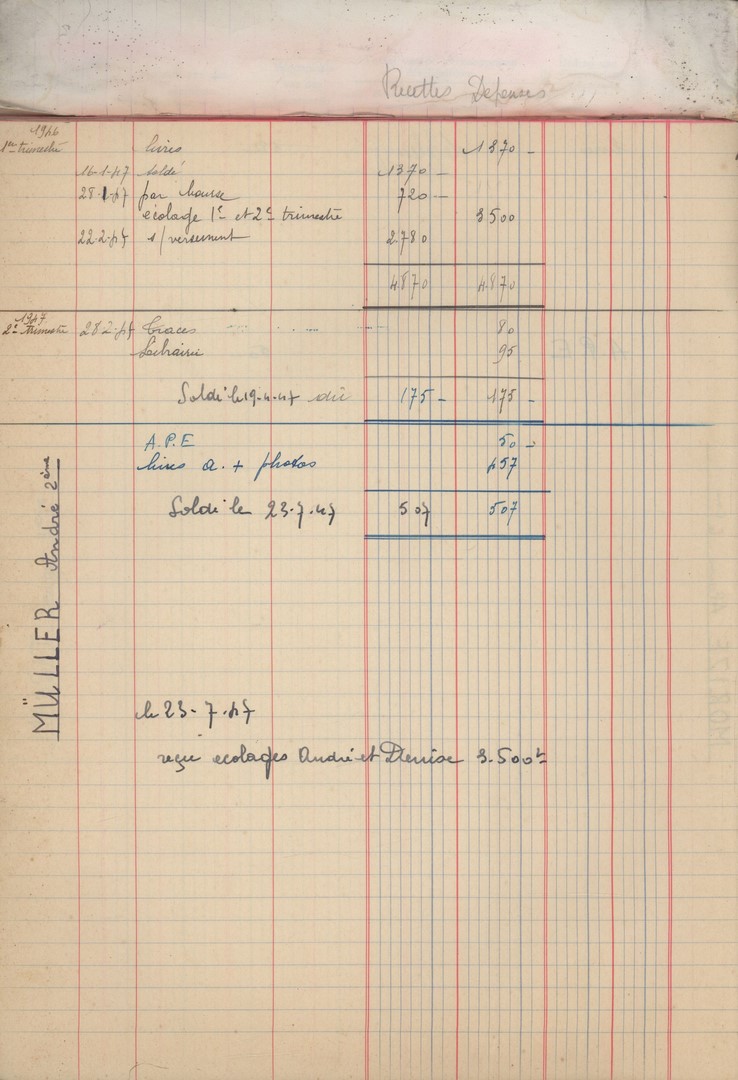 Recettes Dépenses
1946
1er trimestre livres 1370 -
16-1-47 soldé 1370 -
28-1-47 par bourse 720 -
écolage 1er et 2e trimestre 3500
22-2-47 s/versement 2780
4870 4870
1947
2e trimestre 28-2-47 80
95
Soldé le 19-4-47 dû 175 - 175 -
A.P.E 50 -
livres a. + photos 457
Soldé le 23-7-47 507 507
MÜLLER André 2ème
le 23-7-47
reçu ecolages André et Denise 3.500